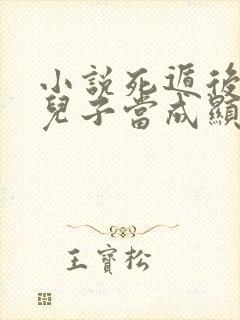 小說死遁後
兒子當成顯
王寶松